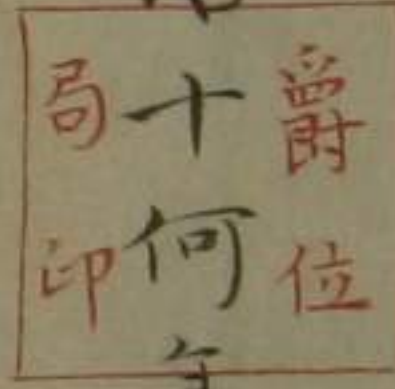 爵位
十何
局印